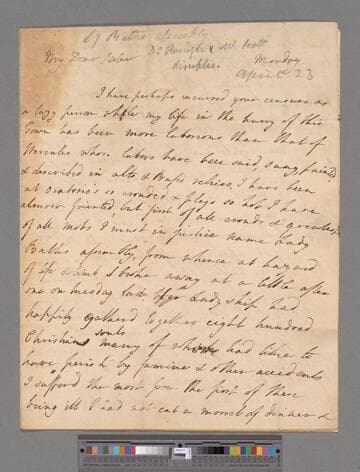 Ly Baths Assembly
Dr Burugh & Mr Scott
My Dear Sister
Monday
April 23
I have perhaps incurred your censure as
a lazy person while my life in the hurry of this
Town has been more laborious than that of
Hercules whose labors have been said, sung, painted
& described in alto & Basso relievo, I have been
at Oratorio's so crouded & plays so hot I have
almost fainted but first of all crouds & greatest
of all mobs I must in justice name Lady
Baths assembly, from whence at hazard
of life & limb I broke away at a little after
one on tuesday last. Her Ladyship had
happily gatherd together eight hundred
Christian souls many of whom had like to
have perish'd by famine & other accidents
I sufferd the most from the first of these
being ill I had not eat a morsel of dinner &